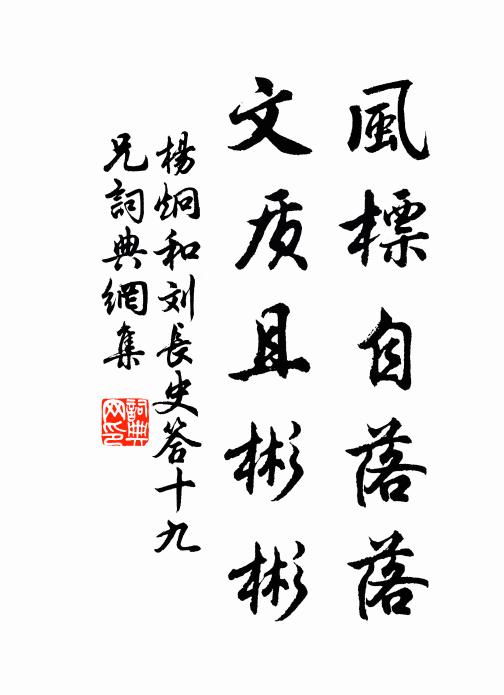 風標自落落
文质且彬彬
楊炯和刘長史答十九
兄詞典網集
詞典
网印